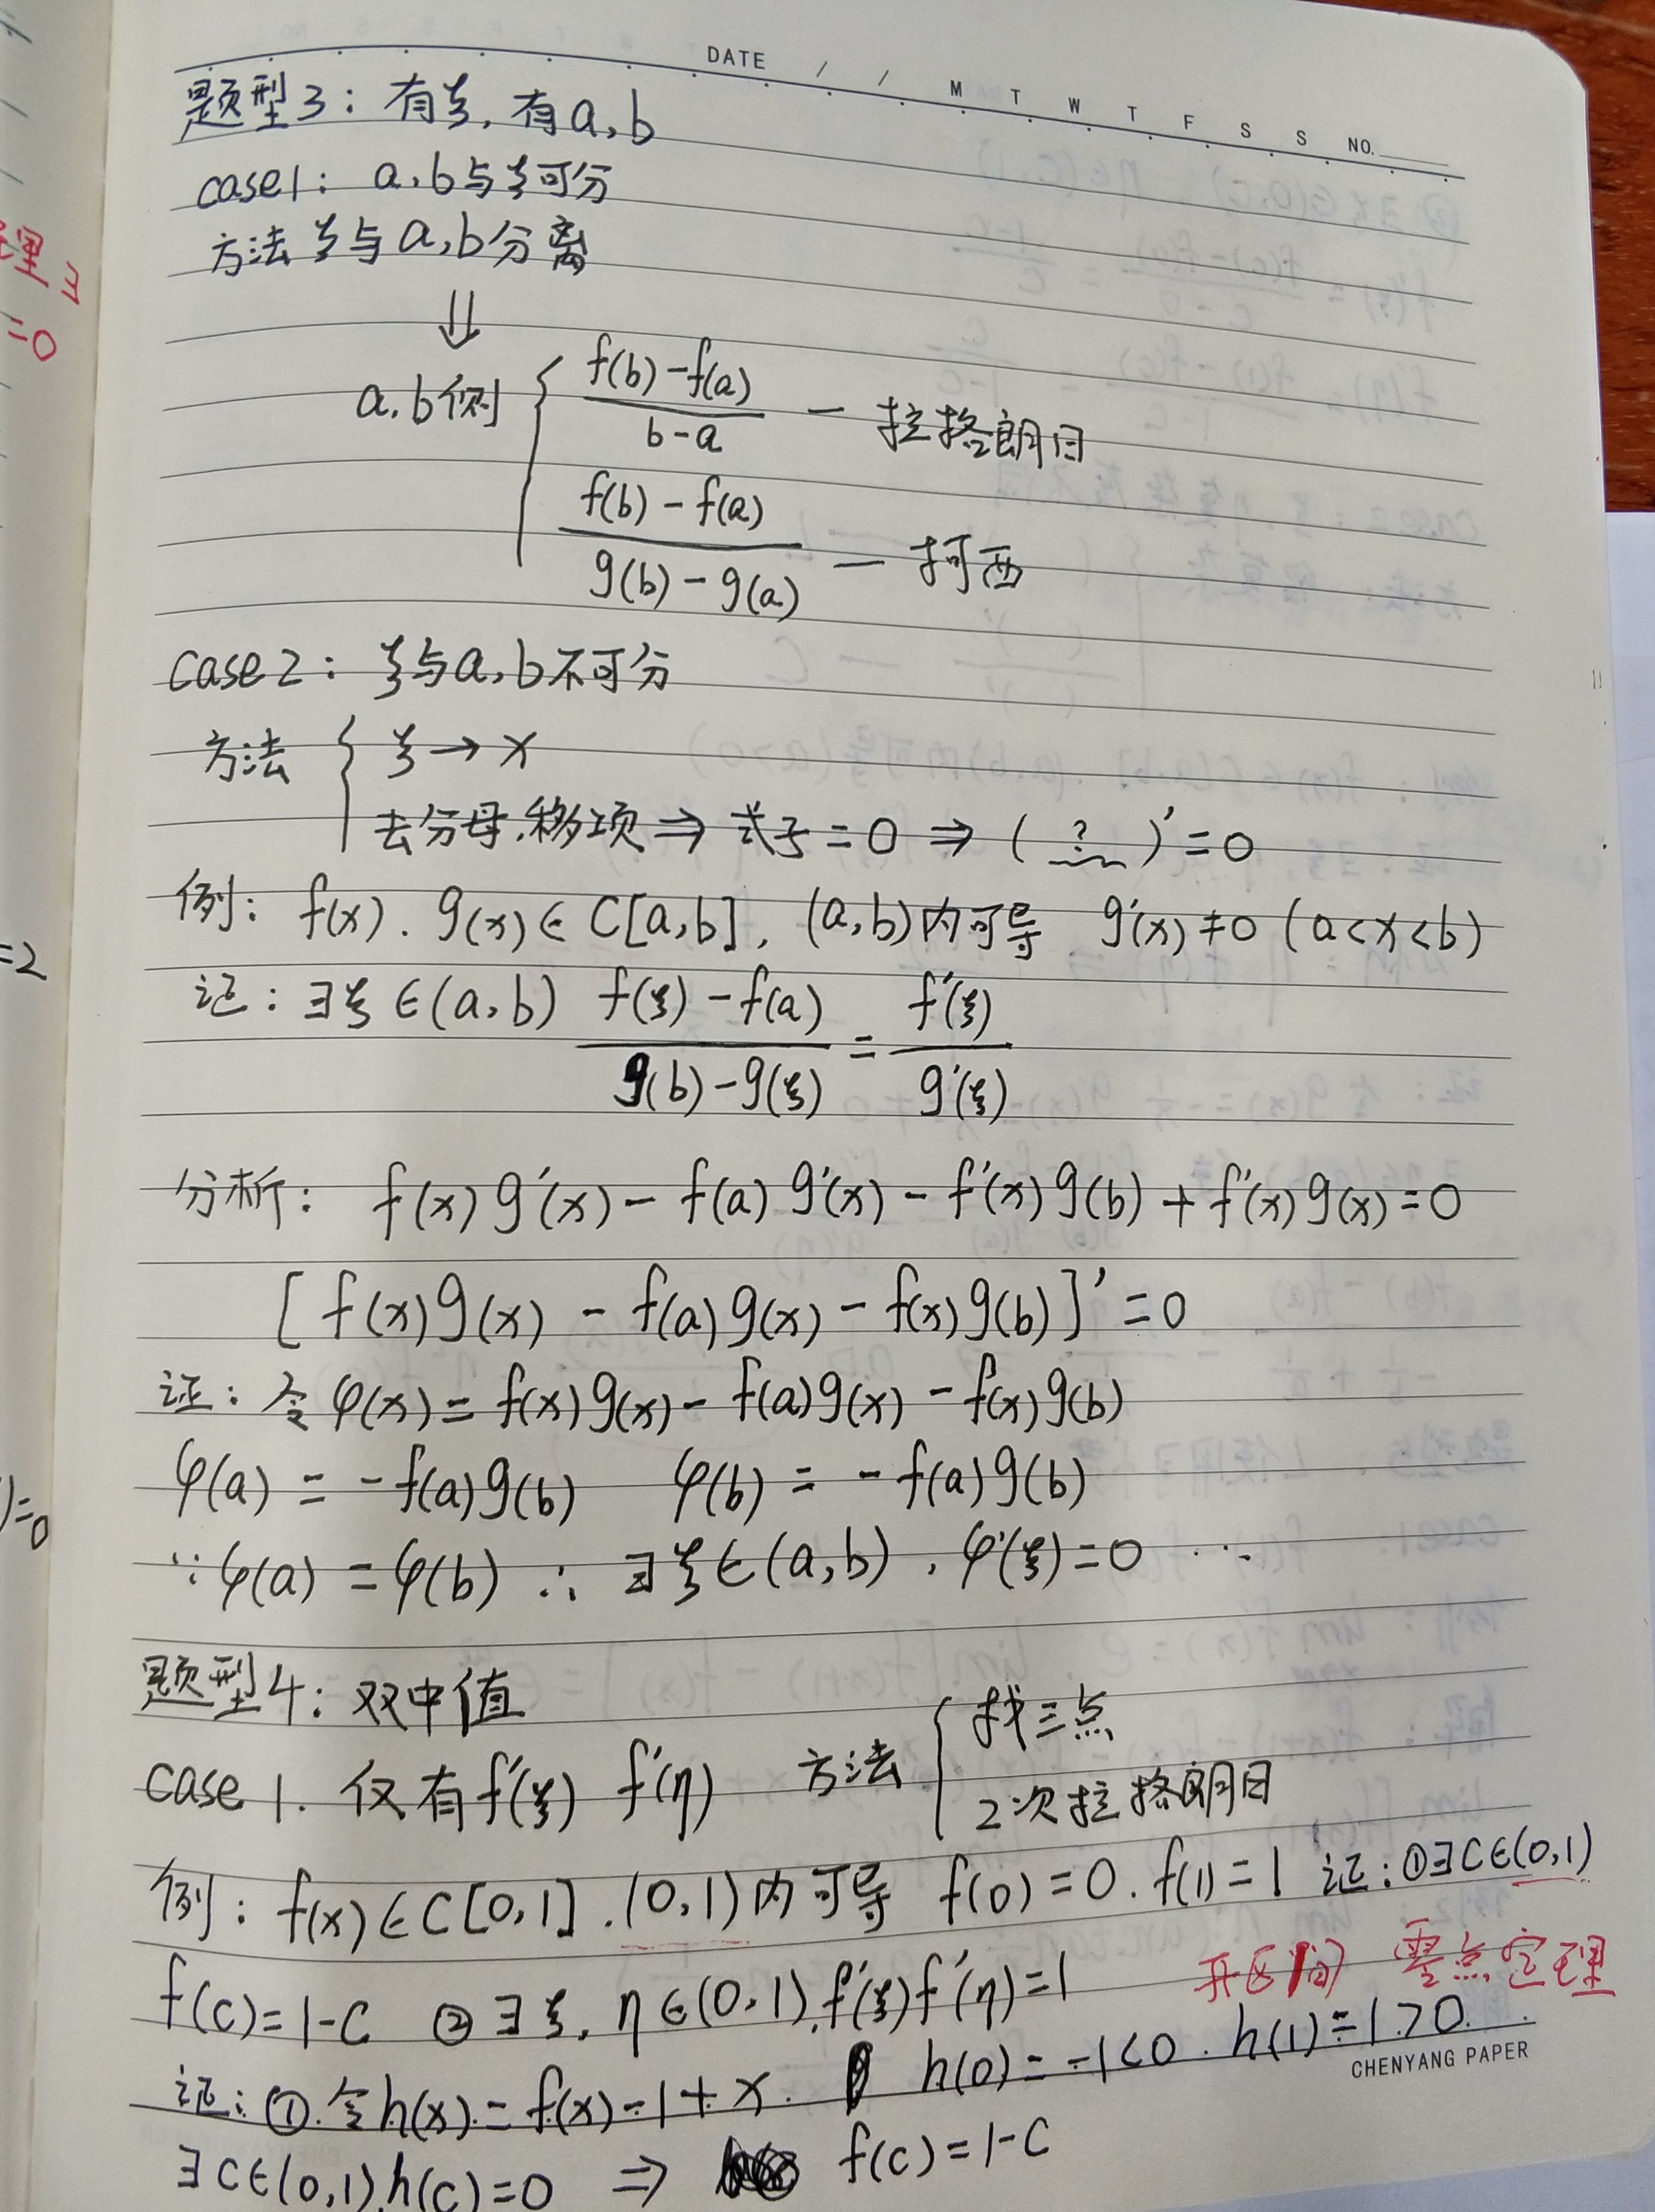 DATE / / M T W T F S S NO.
题型3：有ξ，有a,b
case1：a,b与ξ可分
方法 ξ与a,b分离
⇓
a,b侧 { (f(b)-f(a))/(b-a) — 拉格朗日
(f(b)-f(a))/(g(b)-g(a)) — 柯西
case2：ξ与a,b不可分
方法 { ξ→x
去分母.移项 ⇒ 式子=0 ⇒ ( ? )'=0
例：f(x).g(x)∈C[a,b]，(a,b)内可导 g'(x)≠0 (a<x<b)
证：∃ξ∈(a,b) (f(ξ)-f(a))/(g(b)-g(ξ)) = f'(ξ)/g'(ξ)
分析：f(x)g'(x)-f(a)g'(x)-f'(x)g(b)+f'(x)g(x)=0
[f(x)g(x)-f(a)g(x)-f(x)g(b)]'=0
证：令φ(x)=f(x)g(x)-f(a)g(x)-f(x)g(b)
φ(a)=-f(a)g(b) φ(b)=-f(a)g(b)
∵φ(a)=φ(b) ∴∃ξ∈(a,b)，φ'(ξ)=0 …
题型4：双中值
case 1. 仅有f'(ξ) f'(η) 方法 { 找三点
2次拉格朗日
例：f(x)∈C[0,1].(0,1)内可导 f(0)=0.f(1)=1 证：①∃C∈(0,1)
f(c)=1-c ②∃ξ，η∈(0,1),f'(ξ)f'(η)=1 开区间 零点定理
证：①.令h(x)=f(x)-1+x. h(0)=-1<0. h(1)=1>0.
CHENYANG PAPER
∃C∈(0,1),h(c)=0 ⇒ f(c)=1-c
理
=0
=2
)=0